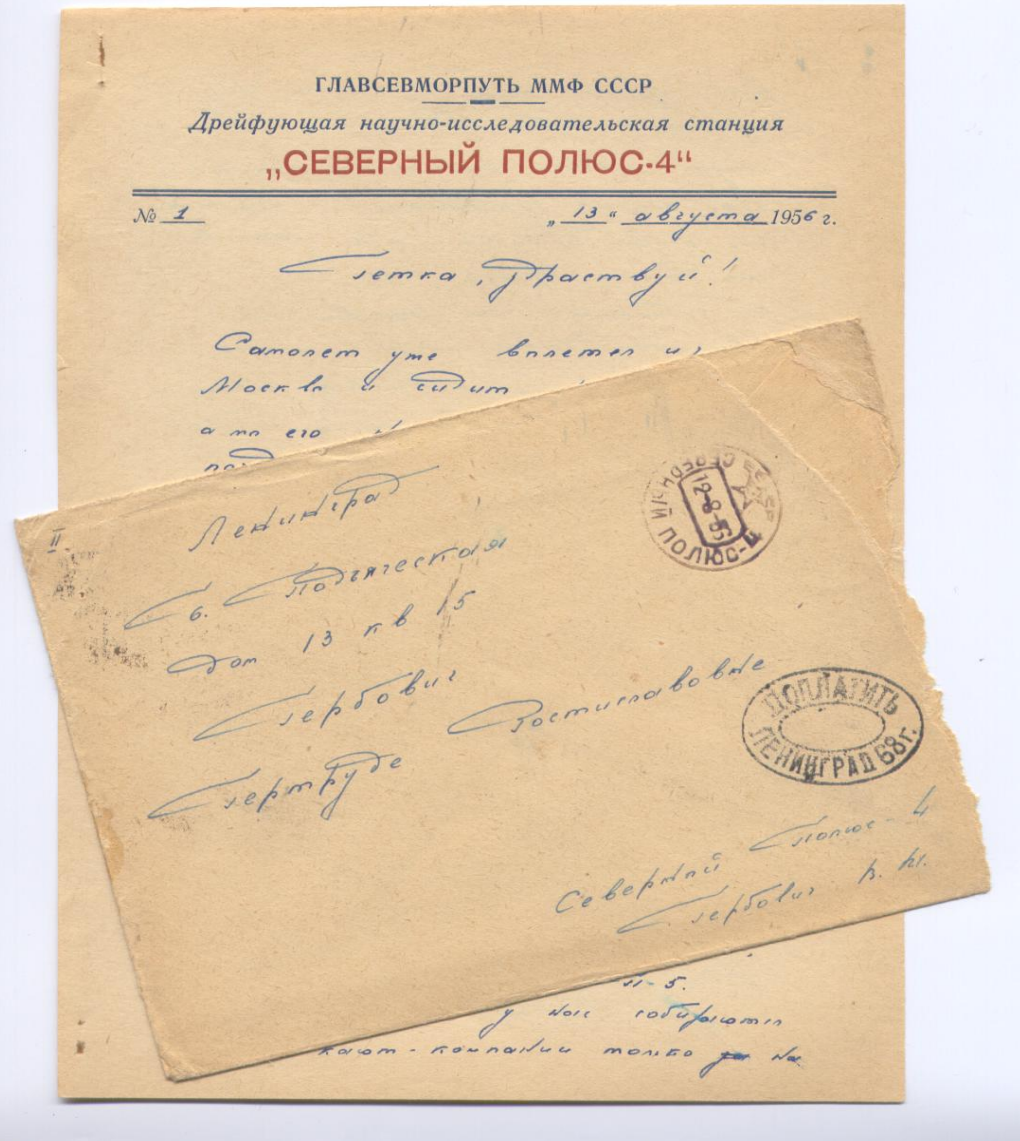 ГЛАВСЕВМОРПУТЬ ММФ СССР
Дрейфующая научно-исследовательская станция
„СЕВЕРНЫЙ ПОЛЮС-4“
№ 1 „13“ августа 1956 г.
Гетка, здраствуй!
Самолет уже вылетел из
Москвы и сидит
а мы его
II
Ленинград
Б. Подьяческая
дом 13 кв 15
Гербович
Гертруде Ростиславовне
СЕВЕРНЫЙ ПОЛЮС-4
СССР
ДОПЛАТИТЬ
ЛЕНИНГРАД 68 г.
Северный Полюс-4
Гербович
П-5.
у нас собираются
кают-компании только на